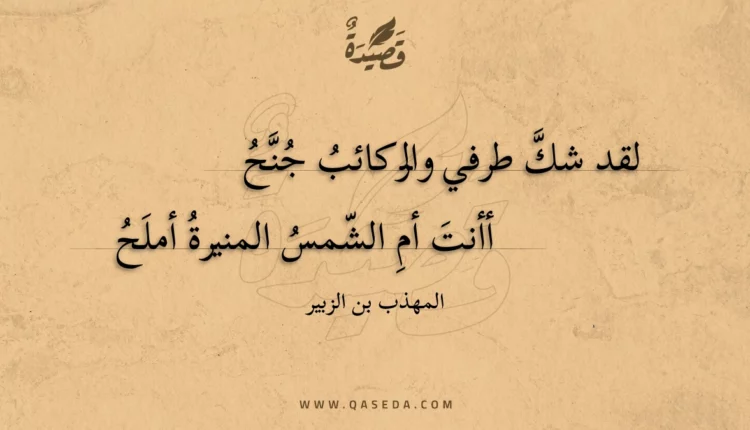 قَصِيْدَةٌ
لقد شكَّ طرفي والركائبُ جُنَّحُ
أأنتَ أمِ الشّمسُ المنيرةُ أملَحُ
المهذب بن الزبير
WWW.QASEDA.COM